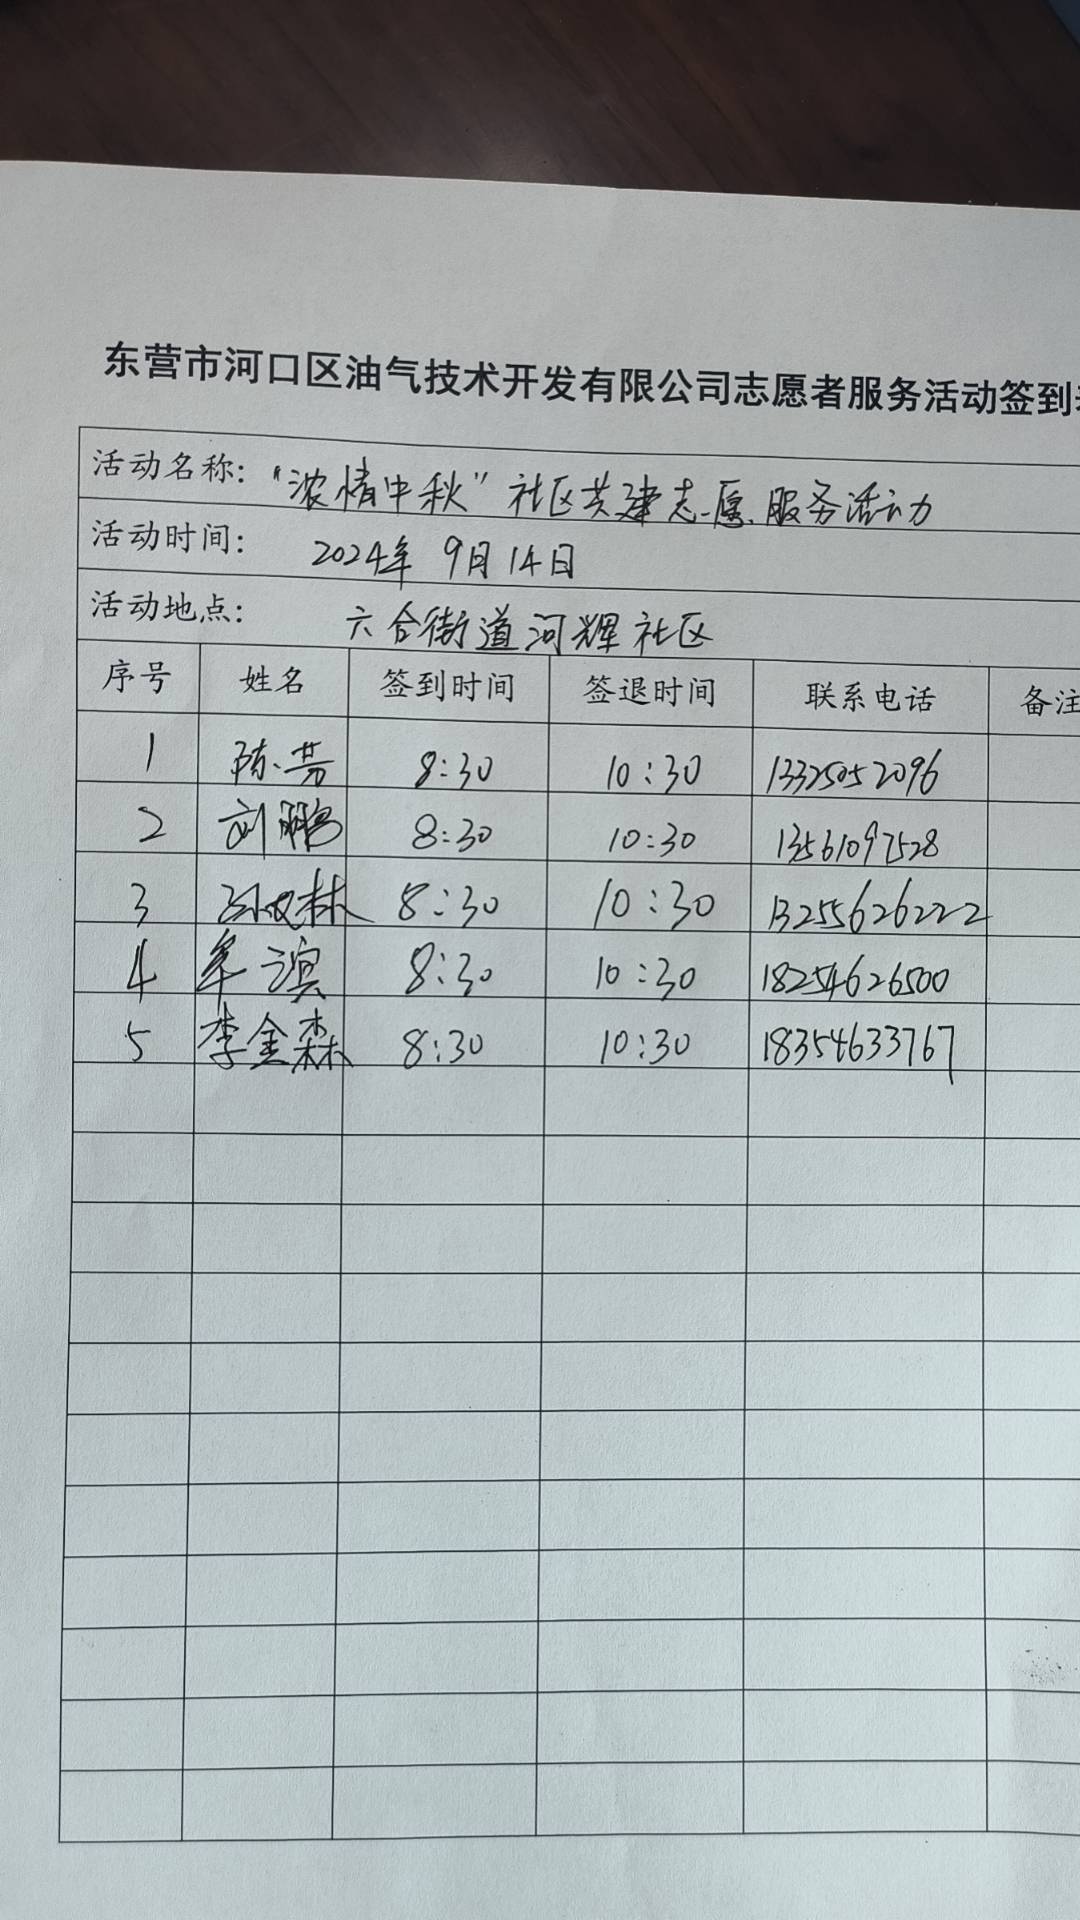 东营市河口区油气技术开发有限公司志愿者服务活动签到
活动名称：“浓情中秋”社区共建志愿服务活动
活动时间： 2024年9月14日
活动地点： 六合街道河辉社区
序号 姓名 签到时间 签退时间 联系电话 备注
1 陈芳 8:30 10:30 13325052096
2 刘鹏 8:30 10:30 13561097528
3 8:30 10:30 13255626222
4 牟滨 8:30 10:30 18254626500
5 李金森 8:30 10:30 18354633767